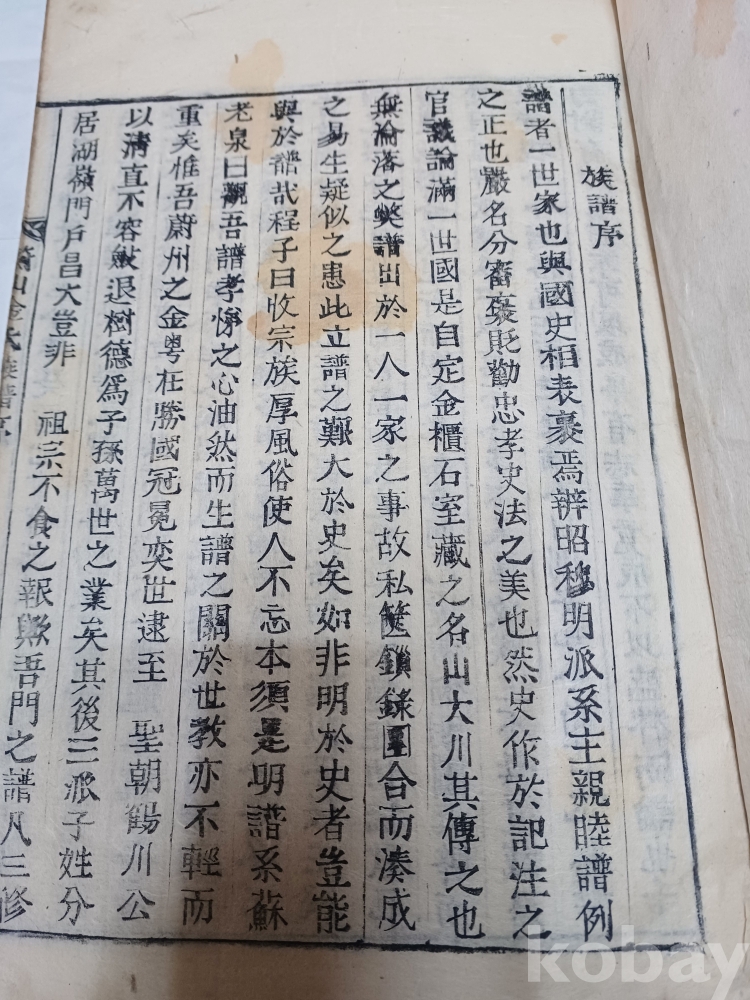 族譜序
譜者一世家也與國史相表裏焉辨昭穆明派系主親睦譜例
之正也嚴名分審褒貶勸忠孝史法之美也然史作於記注之
官議論滿一世國是自定金櫃石室藏之名山大川其傳之也
無淪落之獘譜出於一人一家之事故私篋鎖錄團合而湊成
之易生疑似之患此立譜之艱大於史矣如非明於史者豈能
與於譜㢤程子曰收宗族厚風俗使人不忘本須是明譜系蘇
老泉曰觀吾譜孝悌之心油然而生譜之關於世教亦不輕而
重矣惟吾蔚州之金粤在勝國冠冕奕世逮至 聖朝鶴川公
以淸直不容斂退樹德爲子孫萬世之業矣其後三派子姓分
居湖嶺門戶昌大豈非 祖宗不食之報歟吾門之譜凡三修
蔚山金氏族譜序
kobay